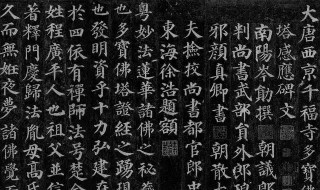 大唐西京千福寺多寶佛
塔感應碑文
南陽岑勛撰 朝議郎
判尚書武部員外郎琅
邪顏真卿書 朝散大
夫撿校尚書都官郎中
東海徐浩題額
粵妙法蓮華諸佛之秘藏
也多寶佛塔證經之踴現
也發明資乎十力弘建在
於四依有禪師法号楚金
姓程廣平人也祖父並信
著釋門慶歸法胤母高氏
久而無妊夜夢諸佛覺而